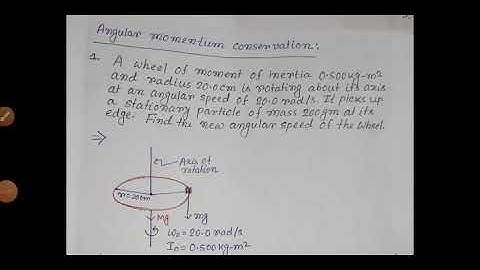 Angular momentum conservation:
1. A wheel of moment of inertia 0.500kg-m²
and radius 20.0cm is rotating about its axis
at an angular speed of 20.0 rad/s. It picks up
a stationary particle of mass 200gm at its
edge. Find the new angular speed of the wheel.
⇒
Axis of
rotation
r=20cm
Mg
mg
ω₀ = 20.0 rad/s
I₀ = 0.500kg-m²